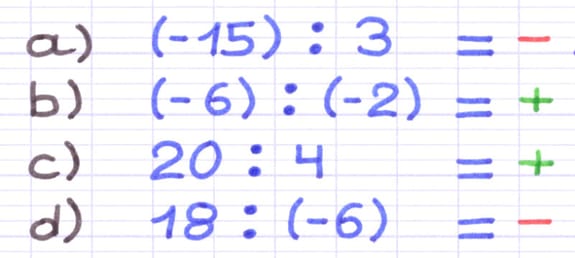 a) (-15) : 3 = -
b) (-6) : (-2) = +
c) 20 : 4 = +
d) 18 : (-6) = -